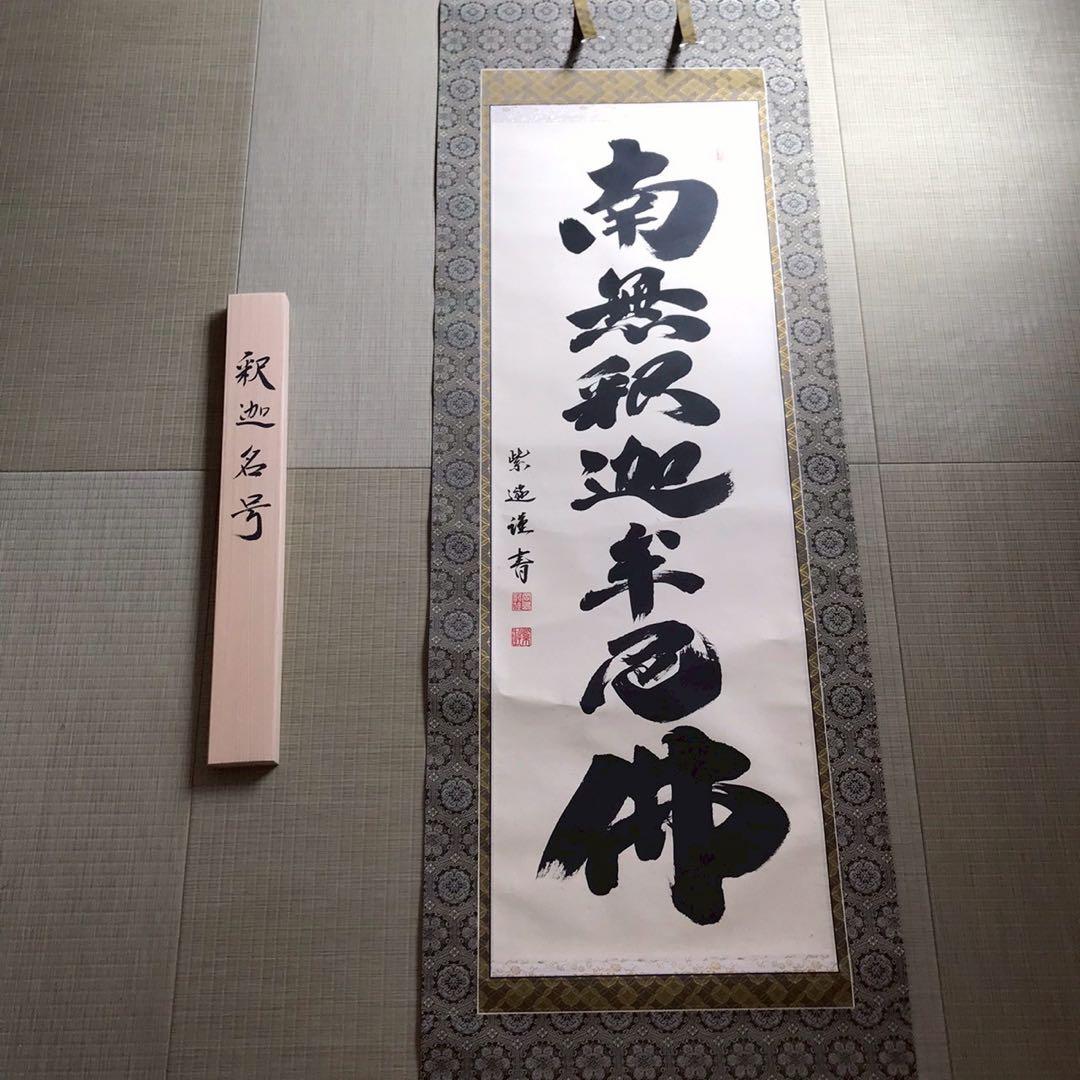 南無釈迦牟尼佛
紫遠謹書
釈迦名号